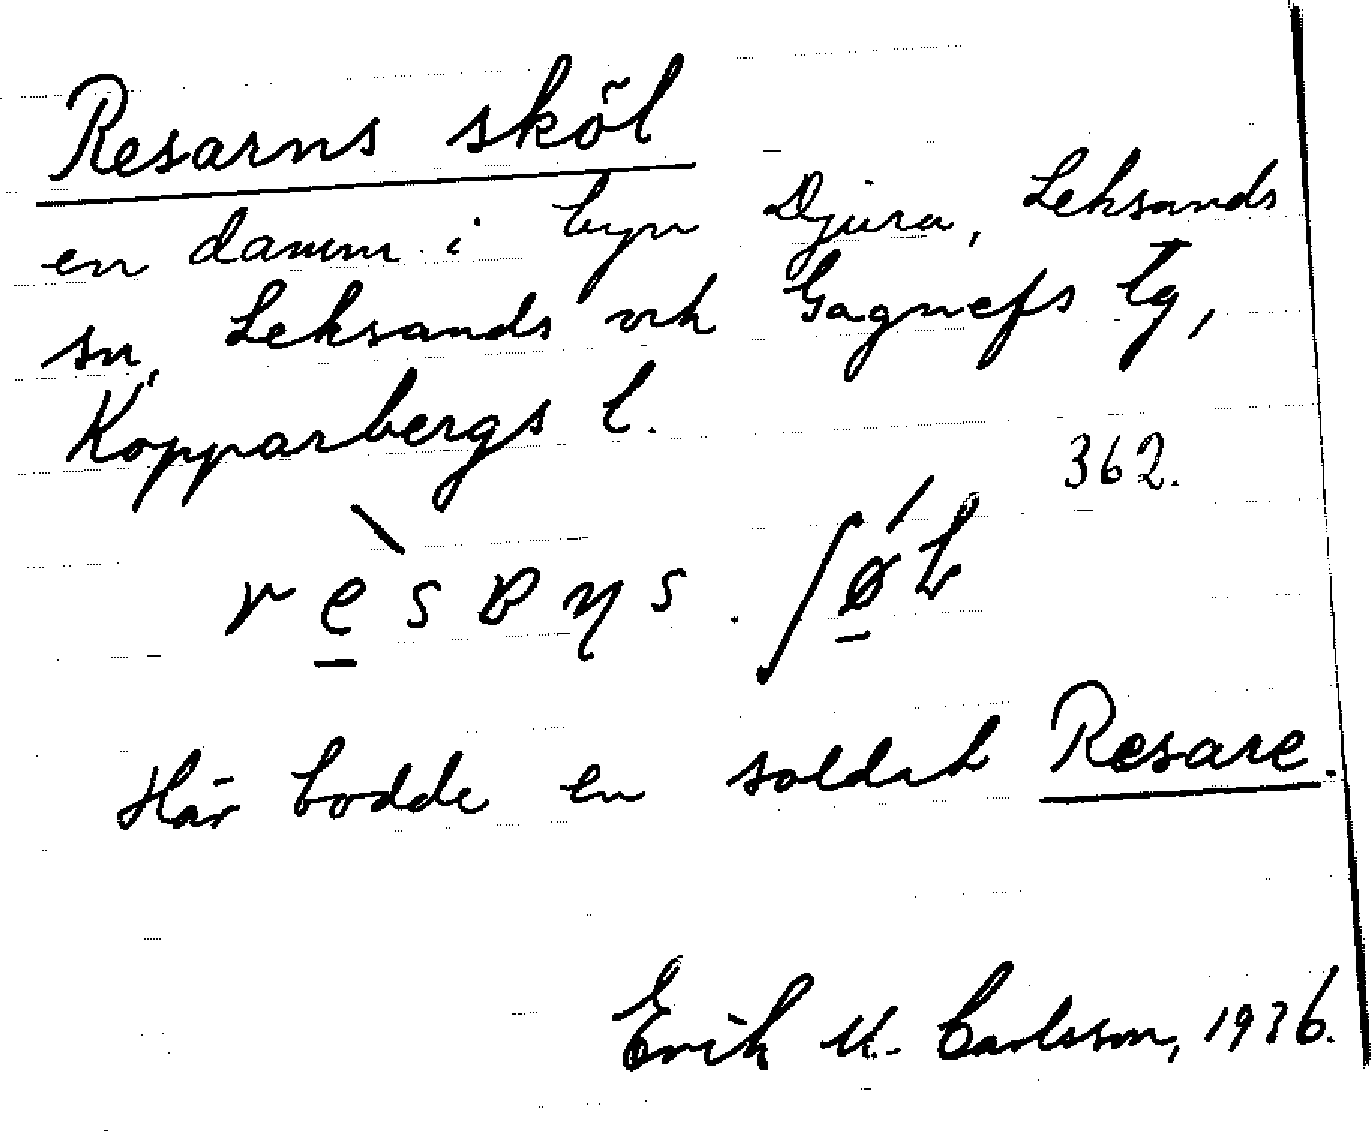 Resarns sköl
en damm i byn Djura, Leksands
sn, Leksands och Gagnefs tg,
Kopparbergs l.
362.
Här bodde en soldat Resare.
Erik M. Carlsson, 1936.